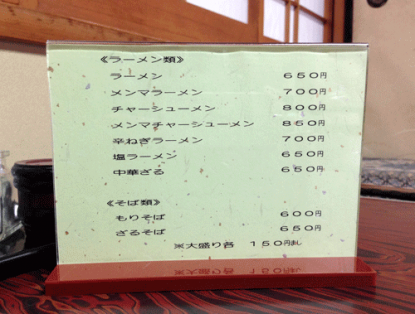 《ラーメン類》
ラーメン 650円
メンマラーメン 700円
チャーシューメン 800円
メンマチャーシューメン 850円
辛ねぎラーメン 700円
塩ラーメン 650円
中華ざる 650円
《そば類》
もりそば 600円
ざるそば 650円
※大盛り各 150円まし